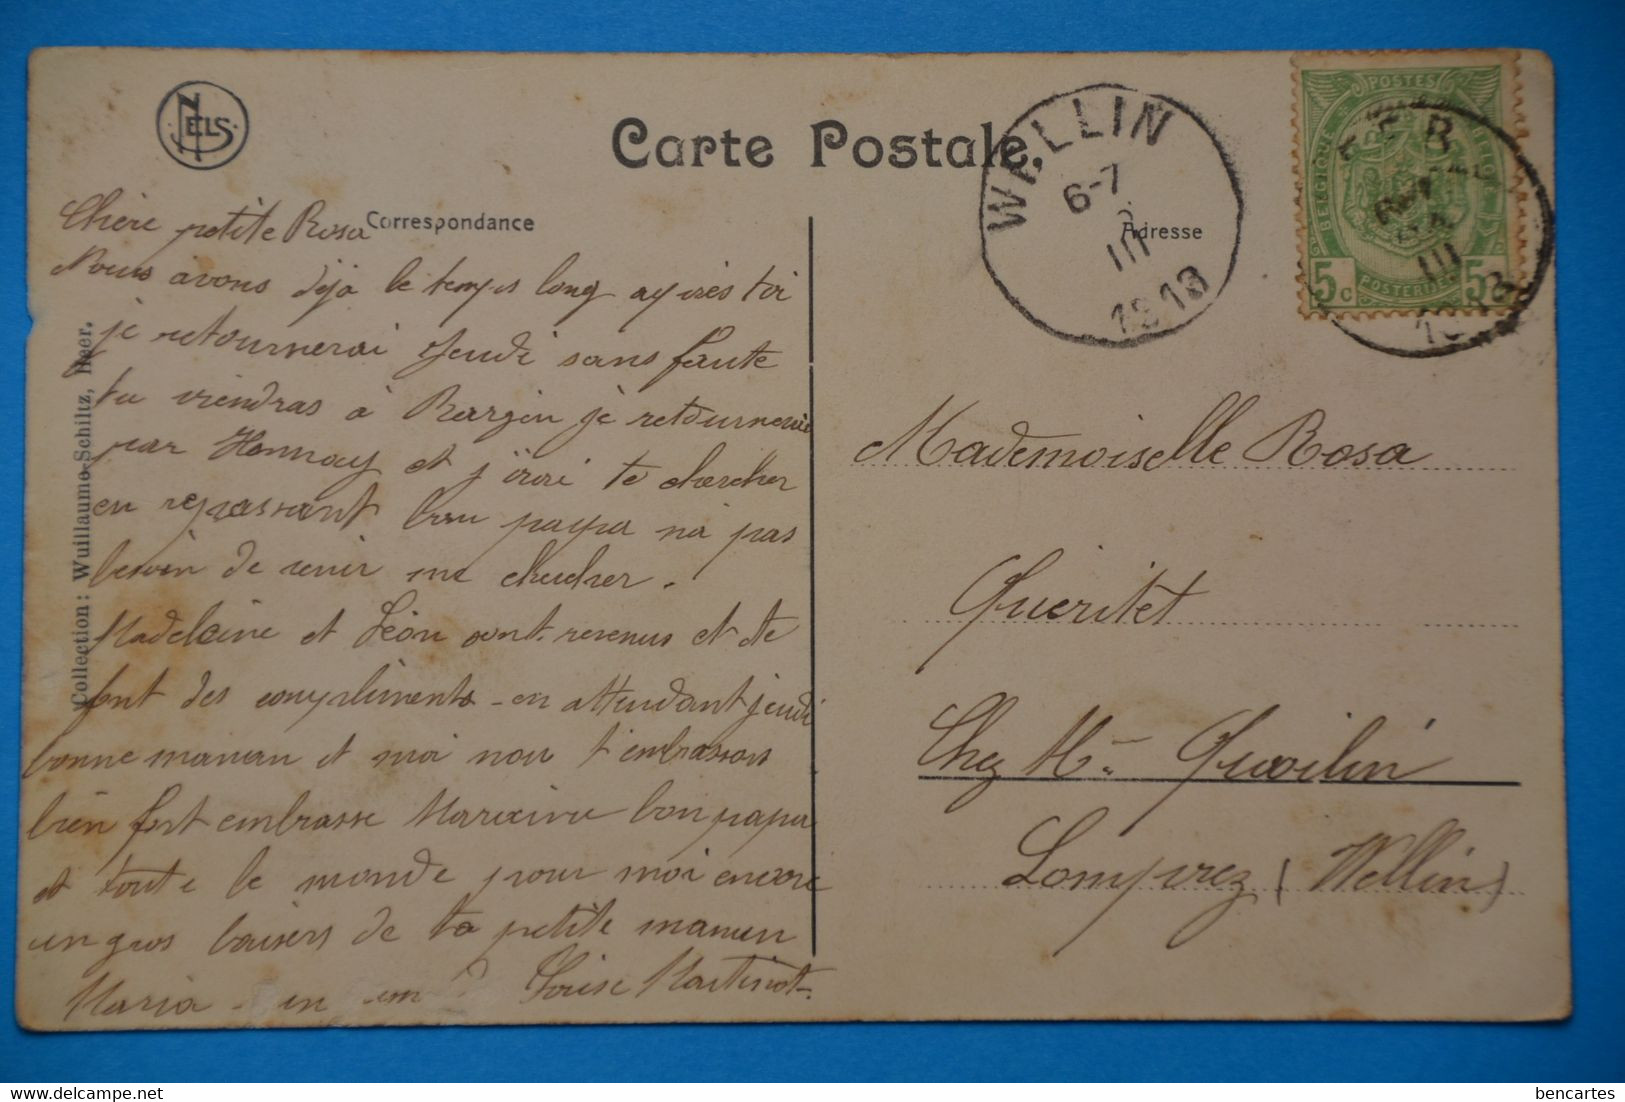 NELS
Carte Postale.
Correspondance
Adresse
WELLIN
6-7
III
1913
POSTES
BELGIQUE
BELGIE
5c
5c
POSTERIJEN
III
Collection: Wuillaume-Schiltz, Heer.
Chère petite Rosa
Nous avons déjà le temps long après toi
je retournerai jeudi sans faute
tu viendras à Bergin je retournerai
par Honnay et j'irai te chercher
en repassant bon papa n'a pas
besoin de venir me chercher.
Madeleine et Léon sont revenus et te
font des compliments - en attendant jeudi
bonne maman et moi nou t'embrassons
bien fort embrasse bon papa
et toute le monde pour moi encore
un gros baisers de ta petite maman
Maria
Louise Martinot
Mademoiselle Rosa
Queritet
Chez Mme Quoilin
Lomprez (Wellin)
bencartes